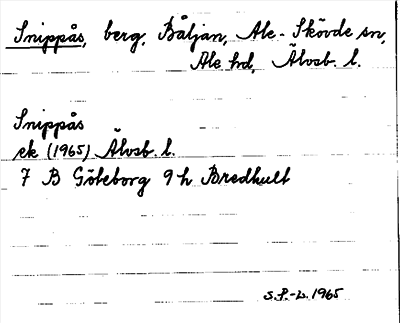 Snippås, berg, Båljan, Ale-Skövde sn,
Ale hd, Älvsb. l.
Snippås
ek (1965) Älvsb. l.
7 B Göteborg 9 h Bredhult
S.P.-L. 1965